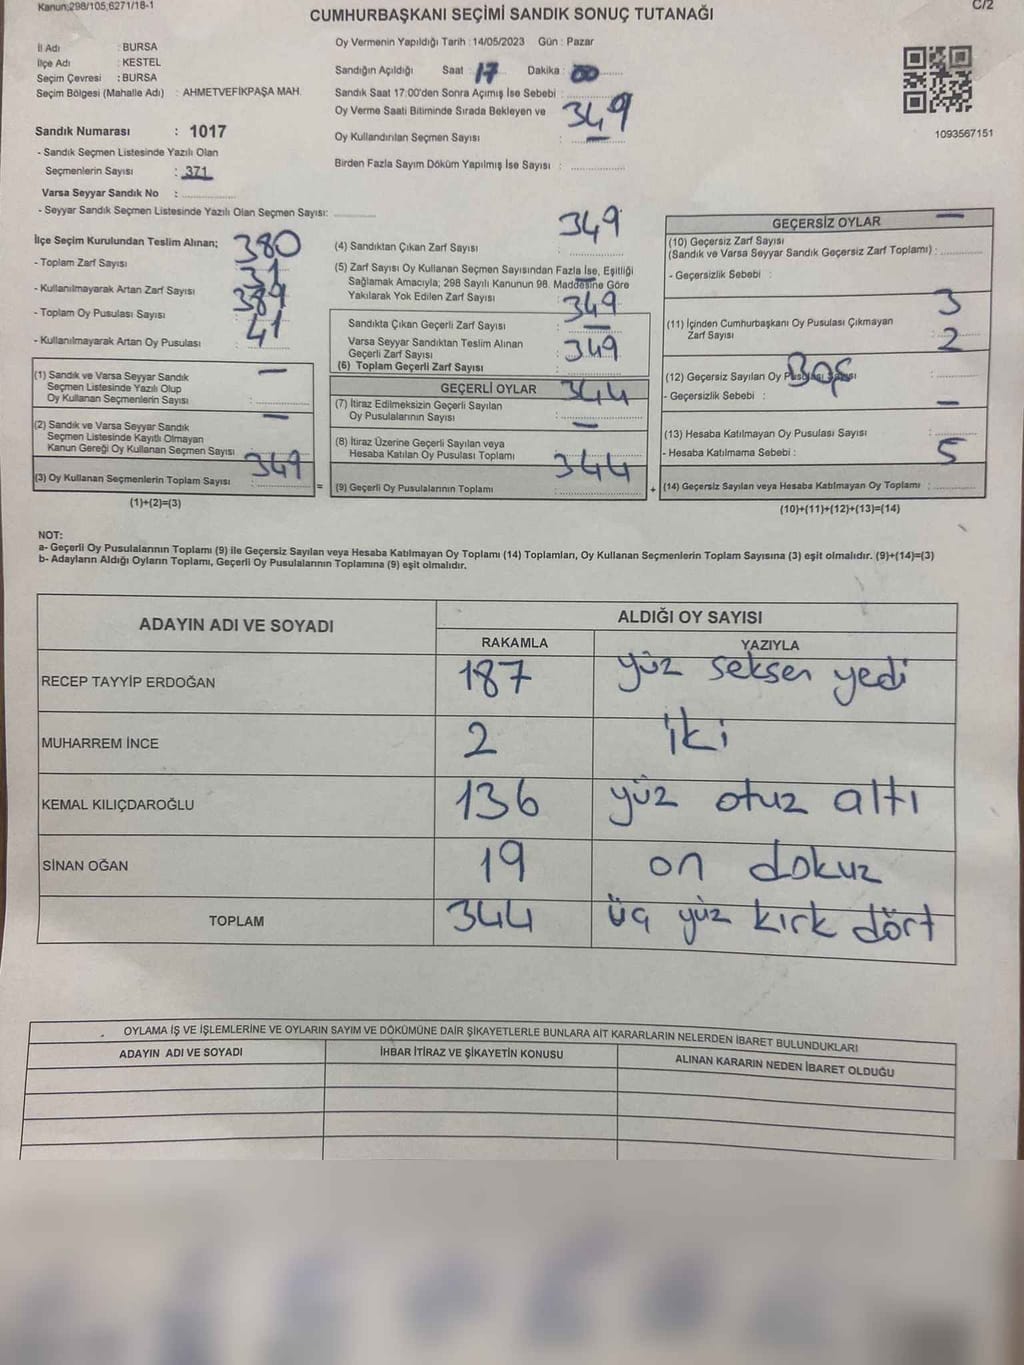 Kanun;298/105;6271/18-1
C/2
CUMHURBAŞKANI SEÇİMİ SANDIK SONUÇ TUTANAĞI
İl Adı : BURSA
İlçe Adı : KESTEL
Seçim Çevresi : BURSA
Seçim Bölgesi (Mahalle Adı) : AHMETVEFİKPAŞA MAH.
Sandık Numarası : 1017
- Sandık Seçmen Listesinde Yazılı Olan
Seçmenlerin Sayısı : 371
Varsa Seyyar Sandık No :
- Seyyar Sandık Seçmen Listesinde Yazılı Olan Seçmen Sayısı:
Oy Vermenin Yapıldığı Tarih : 14/05/2023 Gün : Pazar
Sandığın Açıldığı Saat : 17 Dakika : 00
Sandık Saat 17:00'den Sonra Açımış İse Sebebi :
Oy Verme Saati Bitiminde Sırada Bekleyen ve
Oy Kullandırılan Seçmen Sayısı : 349 —
Birden Fazla Sayım Döküm Yapılmış İse Sayısı :
1093567151
İlçe Seçim Kurulundan Teslim Alınan;
- Toplam Zarf Sayısı 380
- Kullanılmayarak Artan Zarf Sayısı 31
- Toplam Oy Pusulası Sayısı 389
- Kullanılmayarak Artan Oy Pusulası 41
(1) Sandık ve Varsa Seyyar Sandık
Seçmen Listesinde Yazılı Olup
Oy Kullanan Seçmenlerin Sayısı : —
(2) Sandık ve Varsa Seyyar Sandık
Seçmen Listesinde Kayıtlı Olmayan
Kanun Gereği Oy Kullanan Seçmen Sayısı : —
(3) Oy Kullanan Seçmenlerin Toplam Sayısı : 349 =
(1)+(2)=(3)
(4) Sandıktan Çıkan Zarf Sayısı : 349
(5) Zarf Sayısı Oy Kullanan Seçmen Sayısından Fazla İse, Eşitliği
Sağlamak Amacıyla; 298 Sayılı Kanunun 98. Maddesine Göre
Yakılarak Yok Edilen Zarf Sayısı : —
Sandıkta Çıkan Geçerli Zarf Sayısı : 349
Varsa Seyyar Sandıktan Teslim Alınan
Geçerli Zarf Sayısı : —
(6) Toplam Geçerli Zarf Sayısı : 349
GEÇERLİ OYLAR
(7) İtiraz Edilmeksizin Geçerli Sayılan
Oy Pusulalarının Sayısı : 344
(8) İtiraz Üzerine Geçerli Sayılan veya
Hesaba Katılan Oy Pusulası Toplamı : —
(9) Geçerli Oy Pusulalarının Toplamı : 344 +
GEÇERSİZ OYLAR
(10) Geçersiz Zarf Sayısı
(Sandık ve Varsa Seyyar Sandık Geçersiz Zarf Toplamı) : —
- Geçersizlik Sebebi :
(11) İçinden Cumhurbaşkanı Oy Pusulası Çıkmayan
Zarf Sayısı : 3
(12) Geçersiz Sayılan Oy Pusulası Sayısı : 2
- Geçersizlik Sebebi : Boş
(13) Hesaba Katılmayan Oy Pusulası Sayısı : —
- Hesaba Katılmama Sebebi :
(14) Geçersiz Sayılan veya Hesaba Katılmayan Oy Toplamı : 5
(10)+(11)+(12)+(13)=(14)
NOT:
a- Geçerli Oy Pusulalarının Toplamı (9) ile Geçersiz Sayılan veya Hesaba Katılmayan Oy Toplamı (14) Toplamları, Oy Kullanan Seçmenlerin Toplam Sayısına (3) eşit olmalıdır. (9)+(14)=(3)
b- Adayların Aldığı Oyların Toplamı, Geçerli Oy Pusulalarının Toplamına (9) eşit olmalıdır.
ADAYIN ADI VE SOYADI ALDIĞI OY SAYISI
RAKAMLA YAZIYLA
RECEP TAYYİP ERDOĞAN 187 yüz seksen yedi
MUHARREM İNCE 2 iki
KEMAL KILIÇDAROĞLU 136 yüz otuz altı
SİNAN OĞAN 19 on dokuz
TOPLAM 344 üç yüz kırk dört
OYLAMA İŞ VE İŞLEMLERİNE VE OYLARIN SAYIM VE DÖKÜMÜNE DAİR ŞİKAYETLERLE BUNLARA AİT KARARLARIN NELERDEN İBARET BULUNDUKLARI
ADAYIN ADI VE SOYADI İHBAR İTİRAZ VE ŞİKAYETİN KONUSU ALINAN KARARIN NEDEN İBARET OLDUĞU